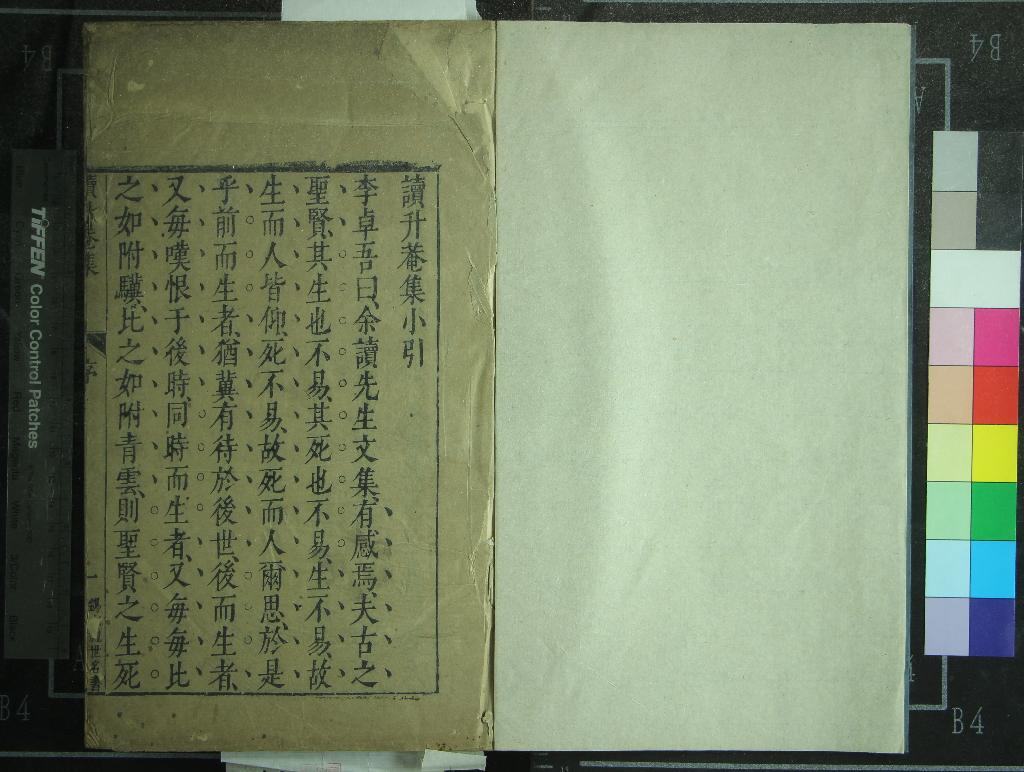 讀升菴集小引
李卓吾曰、余讀先生文集、有感焉、夫古之
聖賢、其生也不易、其死也不易、生不易、故
生而人皆仰、死不易、故死而人爾思、於是
乎前而生者、猶冀有待於後世、後而生者、
又每嘆恨于後時、同時而生者、又每每比
之如附驥、比之如附青雲、則聖賢之生死
序
一
世名書
TIFFEN Color Control Patches
B4
B4
B4
B4